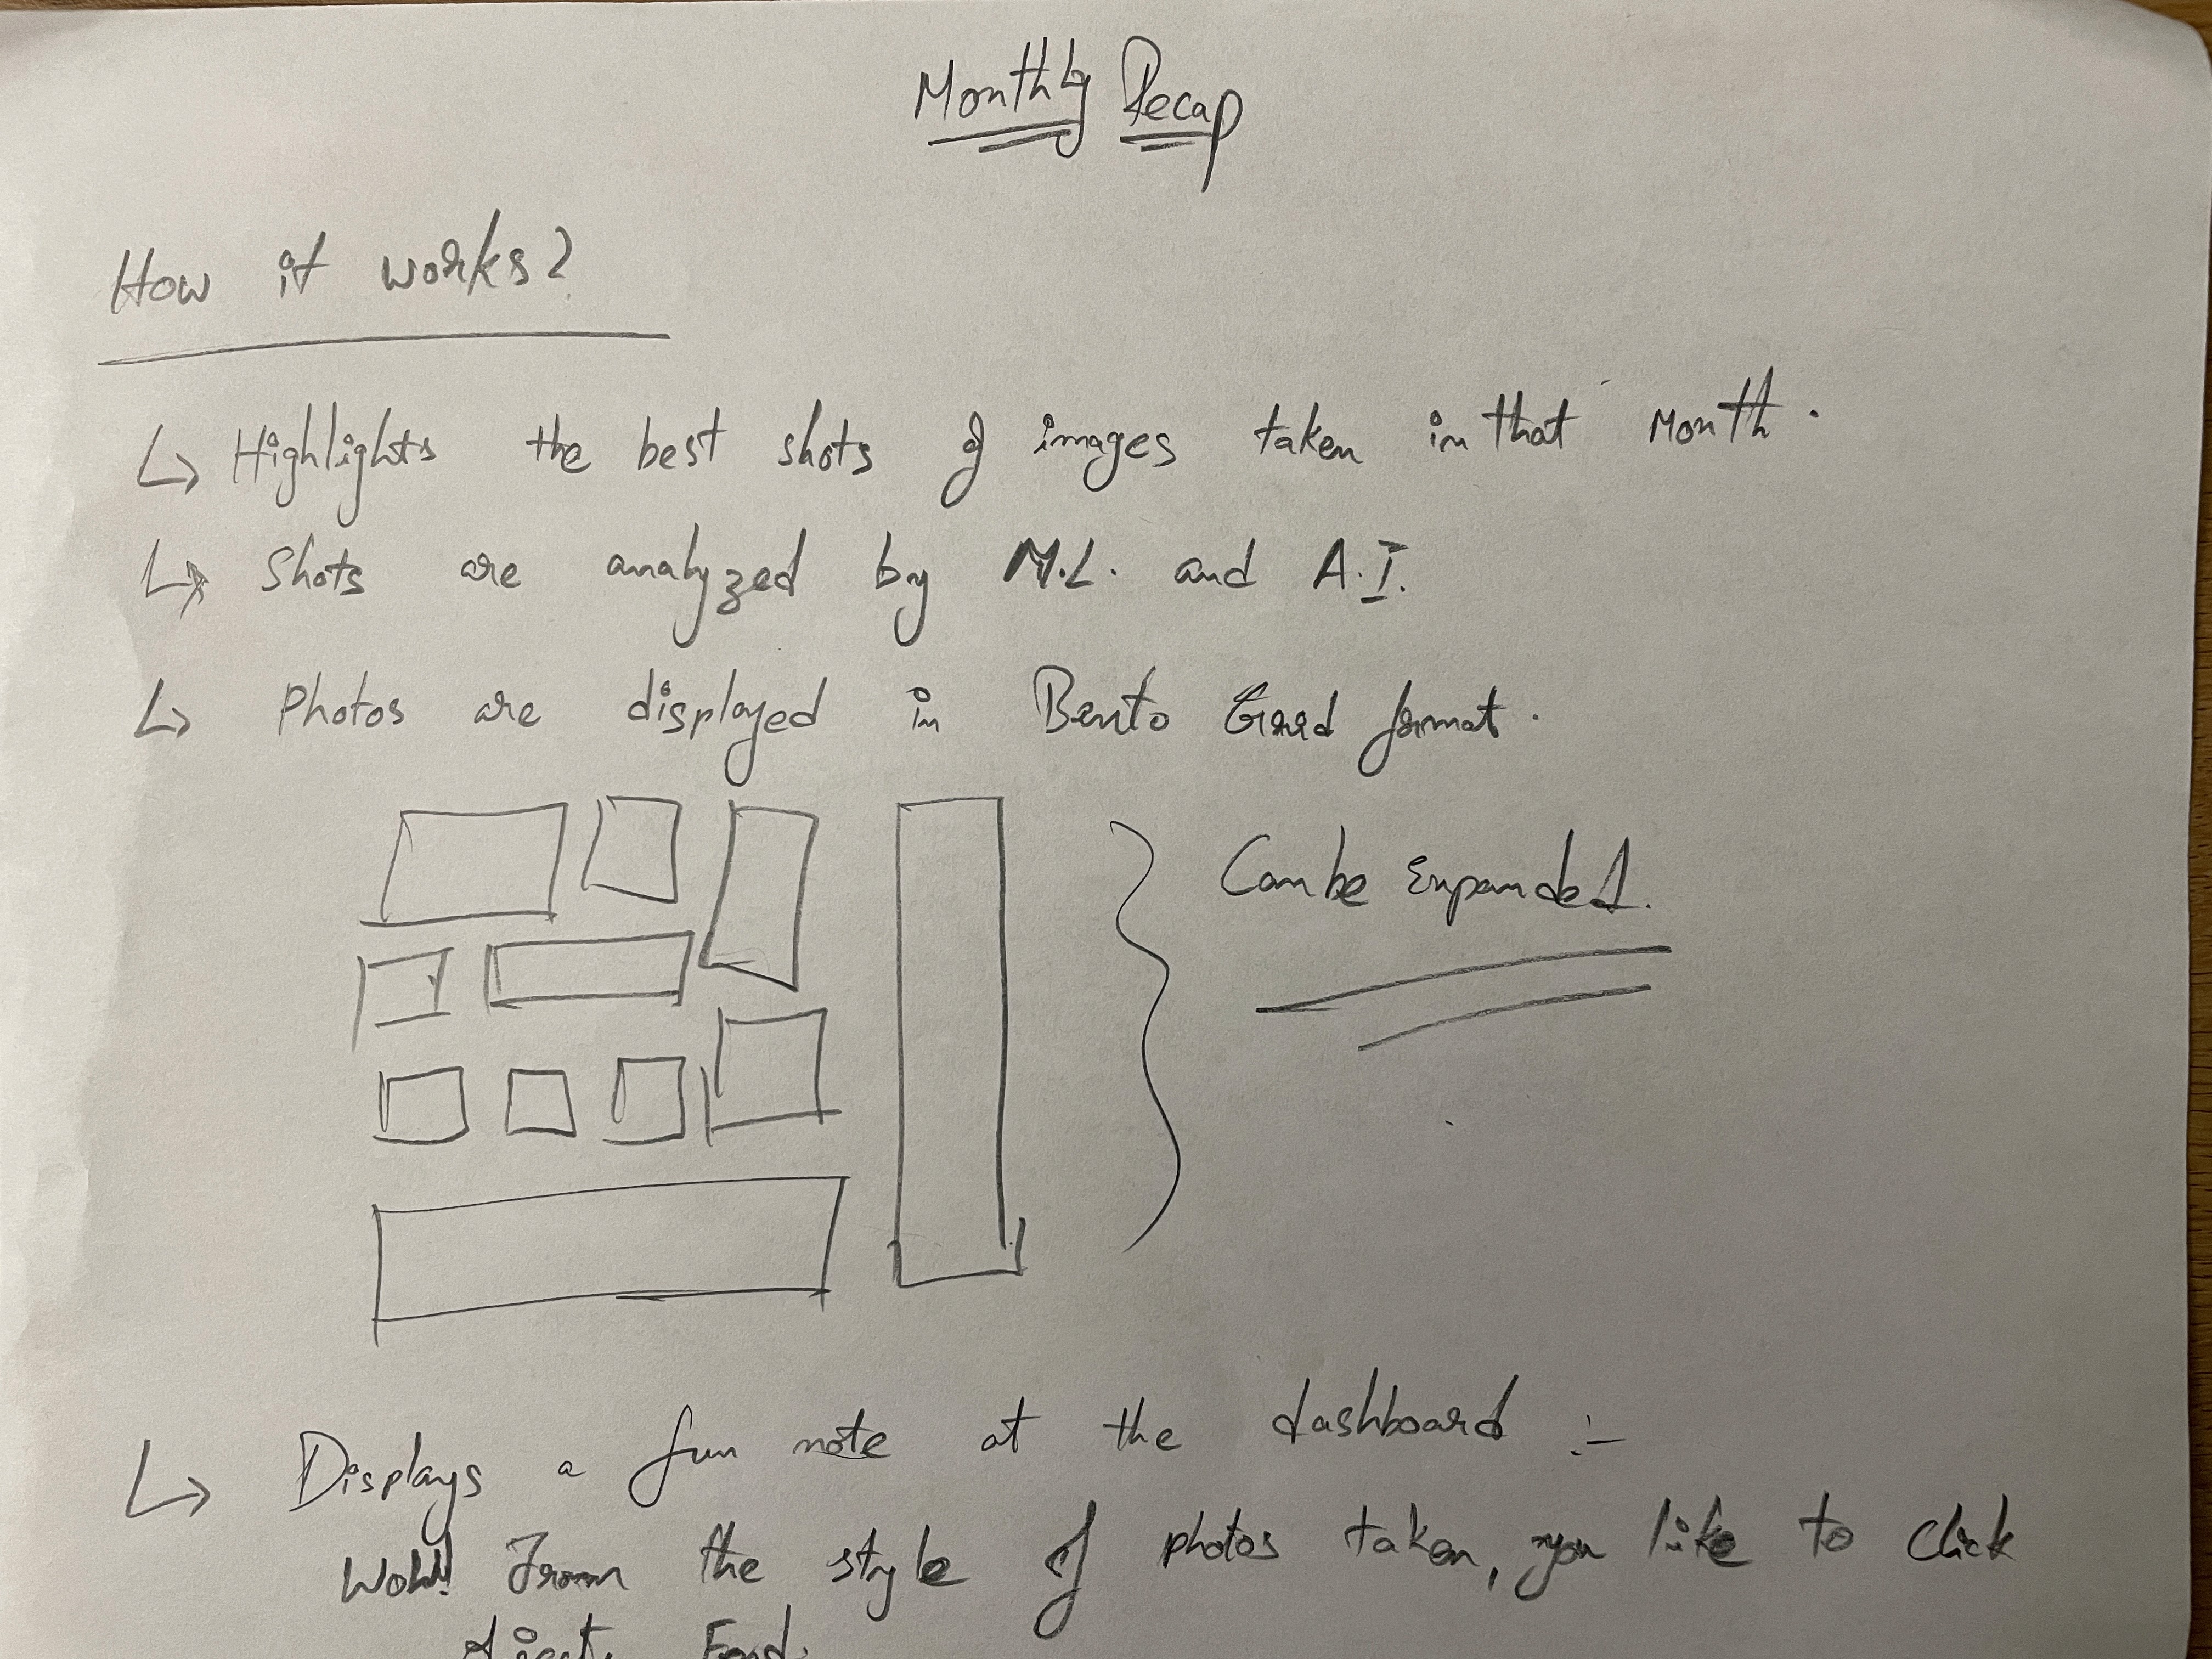 Monthly Recap
How it works?
↳ Highlights the best shots of images taken in that Month.
↳ Shots are analyzed by M.L. and A.I.
↳ Photos are displayed in Bento Grid format.
Can be Expanded.
↳ Displays a fun note at the dashboard :-
Woh! From the style of photos taken, you like to click